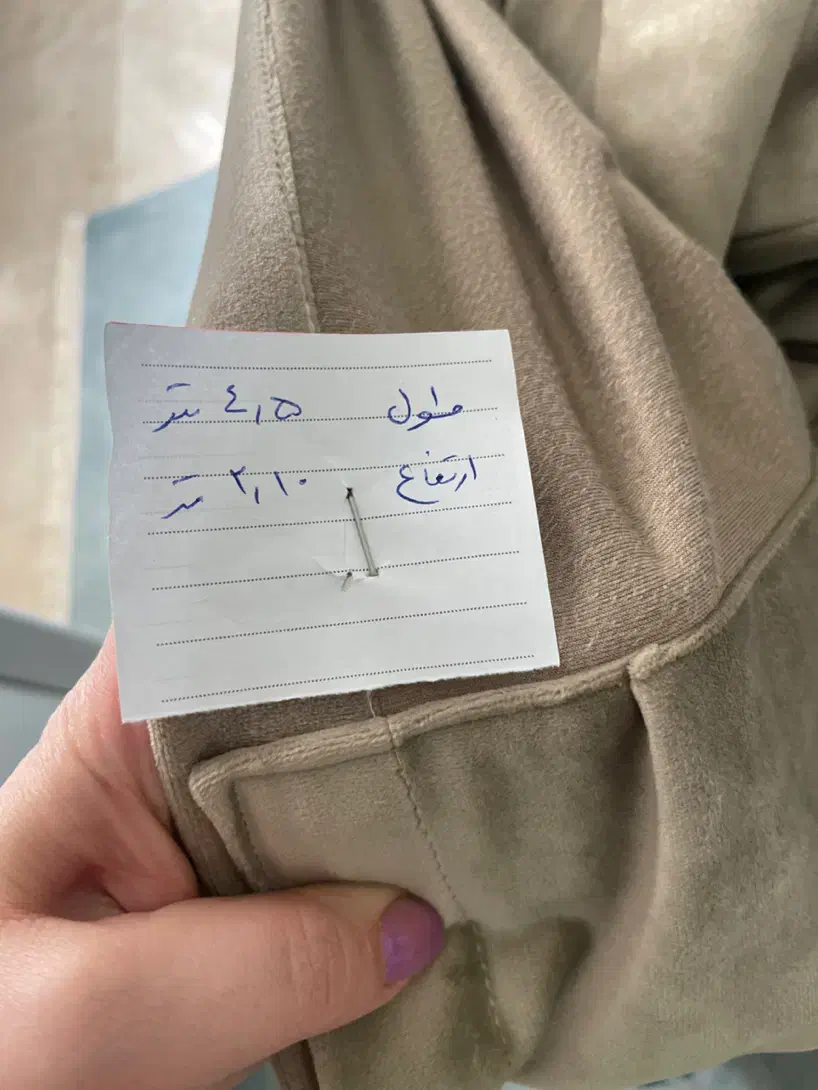 طول ٤,۵ متر
ارتفاع ۲,۱۰ متر